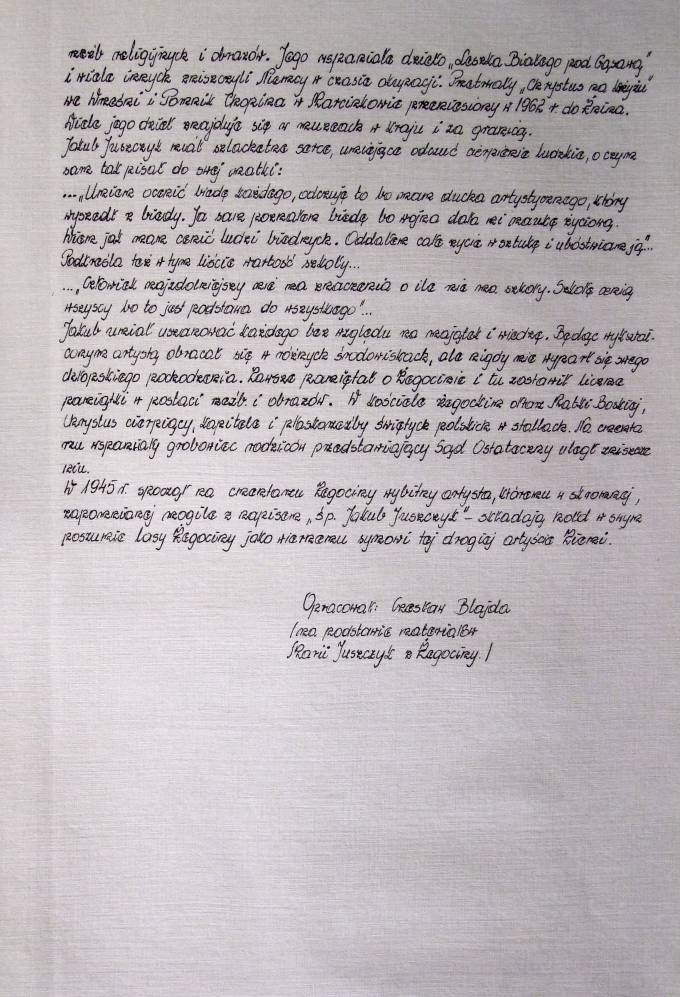 rzeźb religijnych i obrazów. Jego wspaniałe dzieło „Leszka Białego pod Gąsawą”
i wiele innych zniszczyli Niemcy w czasie okupacji. Przetrwały „Chrystus na krzyżu”
we Wrześni i Pomnik Chopina w Marcinkowie przeniesiony w 1962 r. do Żnina.
Wiele jego dzieł znajduje się w muzeach w kraju i za granicą.
Jakub Juszczyk miał szlachetne serce, umiejące odczuć cierpienie ludzkie, o czym
sam tak pisał do swej matki:
...„Umiem ocenić biedę każdego, odczuję to bo mam ducha artystycznego, który
wyszedł z biedy. Ja sam poznałem biedę bo wojna dała mi naukę życiową.
Wiem jak mam cenić ludzi biednych. Oddałem całe życie w sztukę i ubóstwiam ją”...
Podkreśla też w tym liście wartość szkoły...
...„Człowiek najzdolniejszy nie ma znaczenia o ile nie ma szkoły. Szkołę cenią
wszyscy bo to jest podstawa do wszystkiego”...
Jakub umiał uszanować każdego bez względu na majątek i wiedzę. Będąc wykształ-
conym artystą obracał się w różnych środowiskach, ale nigdy nie wyparł się swego
chłopskiego pochodzenia. Zawsze pamiętał o Żegocinie i tu zostawił liczne
pamiątki w postaci rzeźb i obrazów. W kościele żegockim ołtarz Matki Boskiej,
Chrystus cierpiący, kapitele i płaskorzeźby świętych polskich w stallach. Na cmenta
rzu wspaniały grobowiec rodziców przedstawiający Sąd Ostateczny uległ zniszcze
niu.
W 1945 r. spoczął na cmentarzu Żegociny wybitny artysta, któremu w skromnej,
zapomnianej mogile z napisem „śp. Jakub Juszczyk” – składają hołd w swym
poszumie lasy Żegociny jako wiernemu synowi tej drogiej artyście Ziemi.
Opracował: Czesław Blajda
/na podstawie materiałów
Marii Juszczyk z Żegociny./